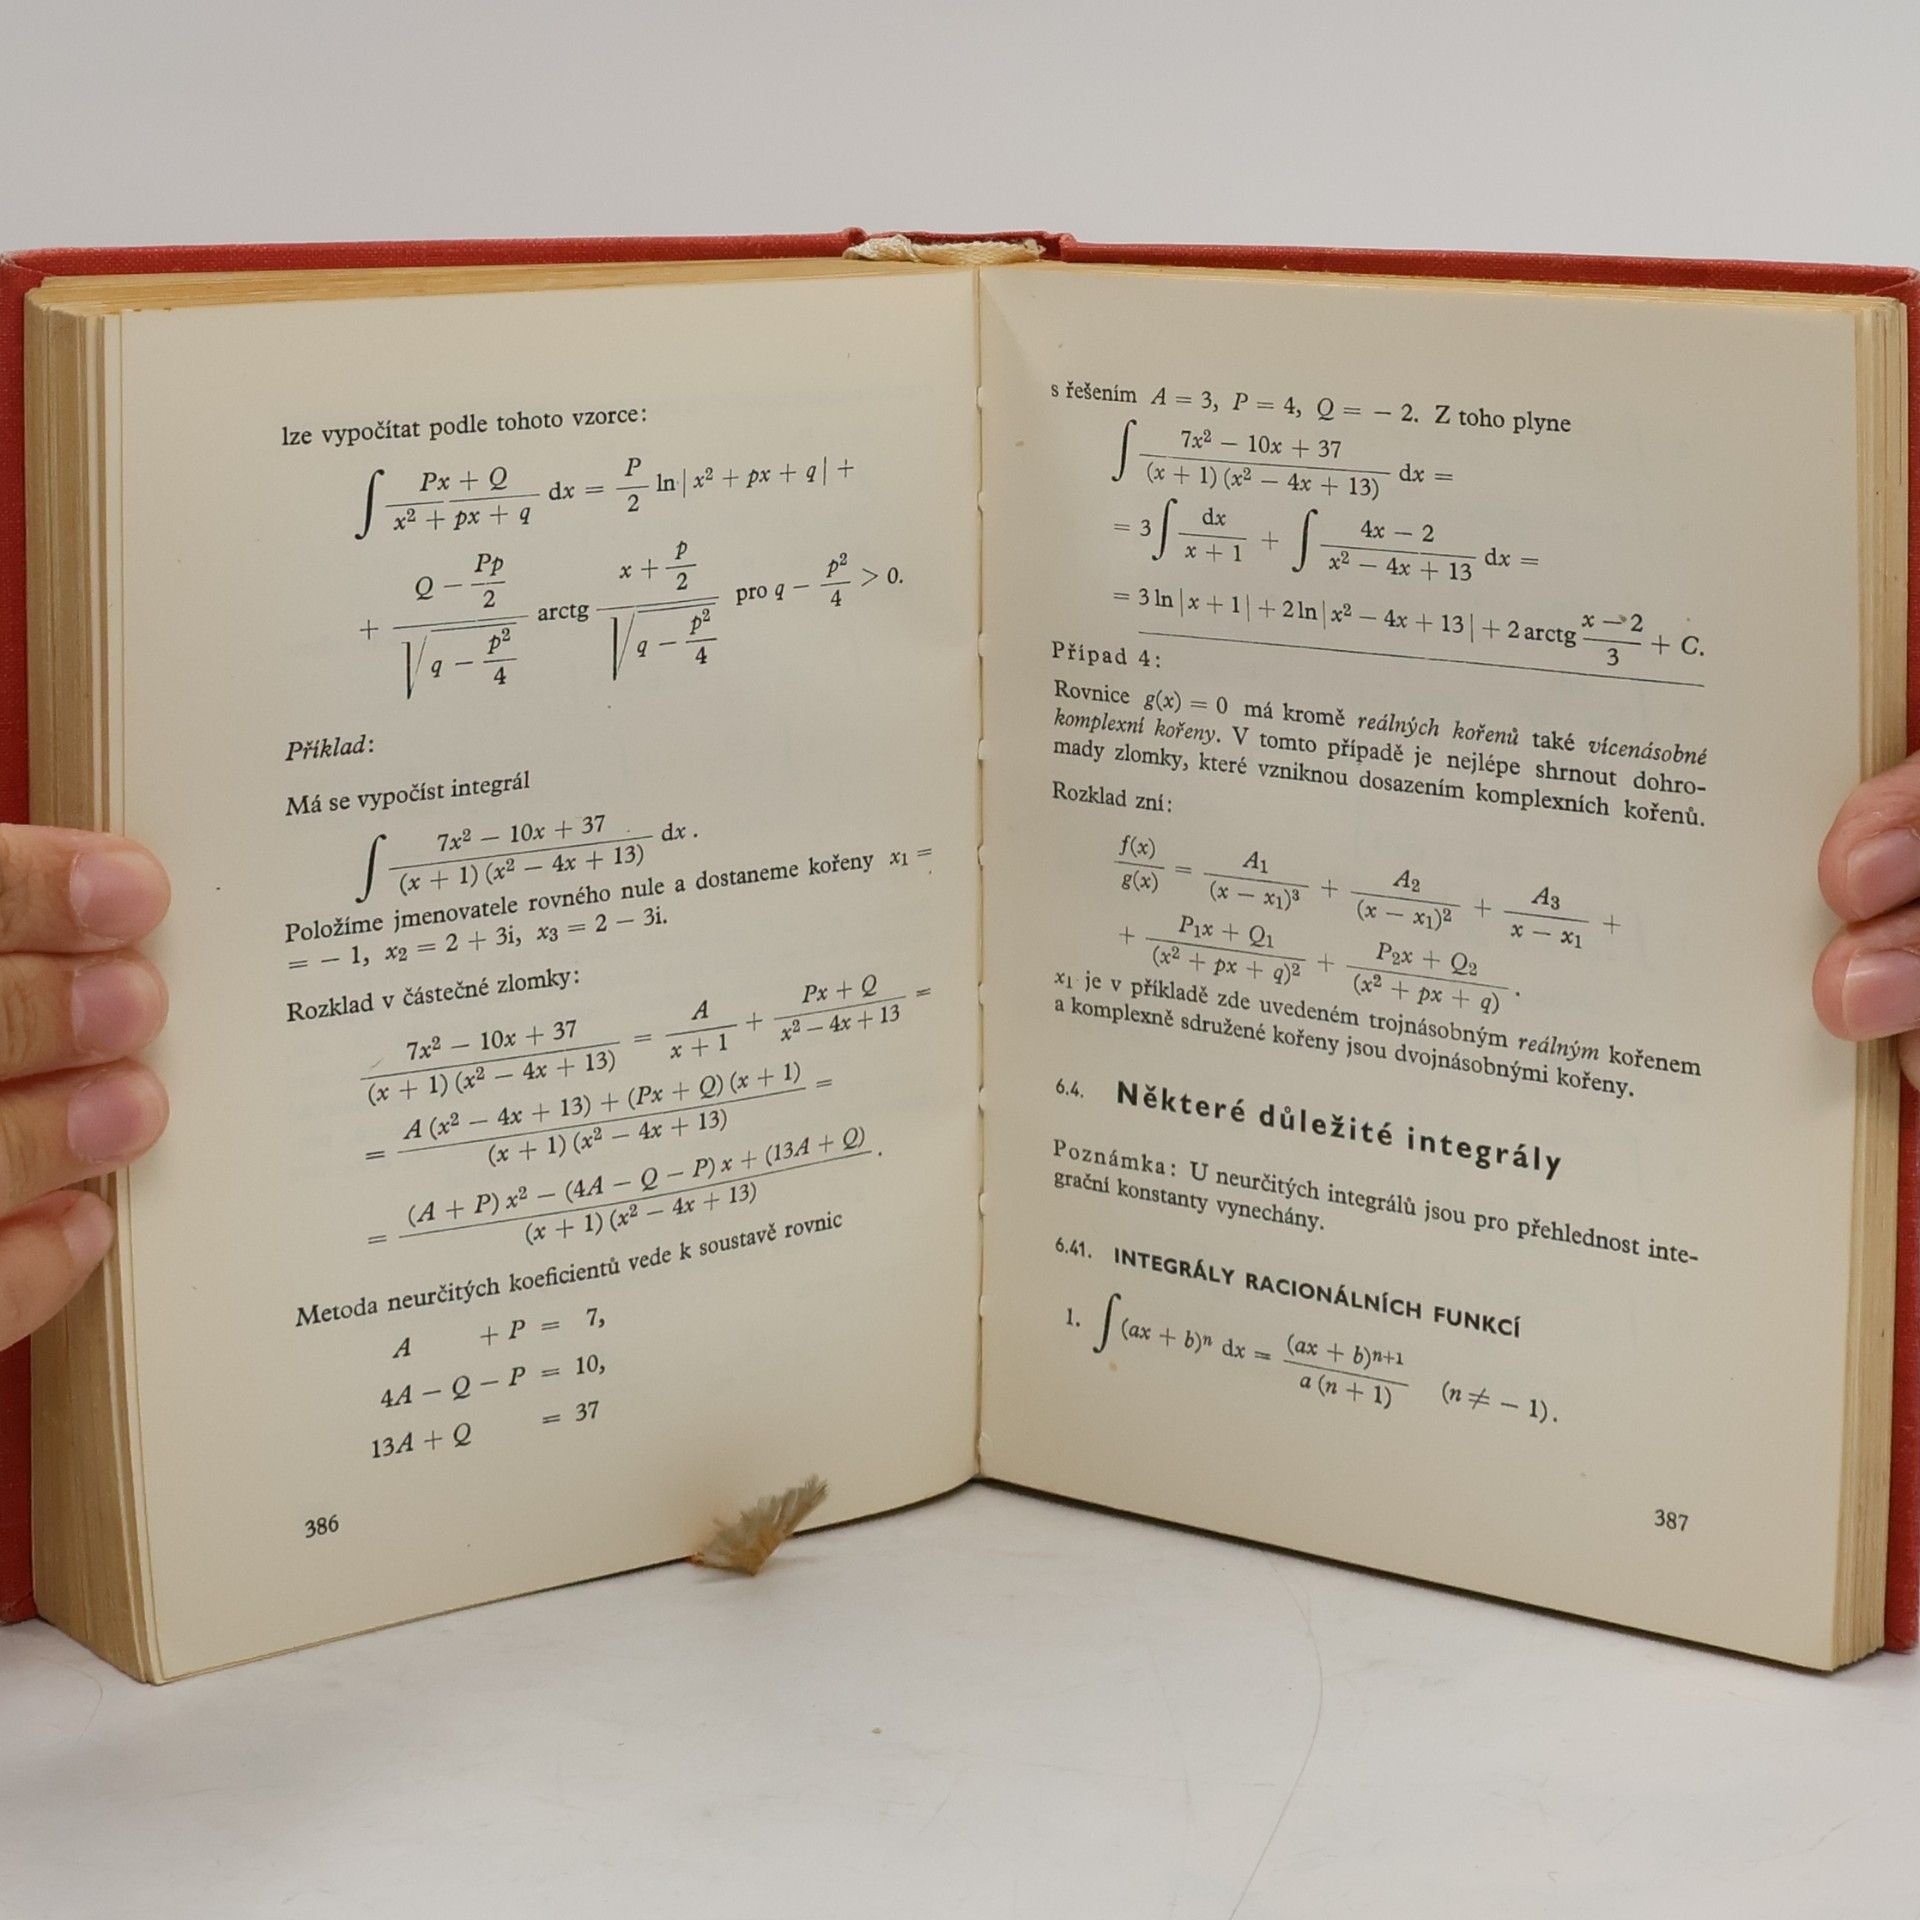 lze vypočítat podle tohoto vzorce:
∫ (Px + Q)/(x² + px + q) dx = P/2 ln | x² + px + q | +
+ (Q − Pp/2)/√(q − p²/4) arctg (x + p/2)/√(q − p²/4) pro q − p²/4 > 0.
Příklad:
Má se vypočíst integrál
∫ (7x² − 10x + 37)/((x + 1) (x² − 4x + 13)) dx .
Položíme jmenovatele rovného nule a dostaneme kořeny x₁ =
= − 1, x₂ = 2 + 3i, x₃ = 2 − 3i.
Rozklad v částečné zlomky:
(7x² − 10x + 37)/((x + 1) (x² − 4x + 13)) = A/(x + 1) + (Px + Q)/(x² − 4x + 13) =
= (A (x² − 4x + 13) + (Px + Q) (x + 1))/((x + 1) (x² − 4x + 13)) =
= ((A + P) x² − (4A − Q − P) x + (13A + Q))/((x + 1) (x² − 4x + 13)) .
Metoda neurčitých koeficientů vede k soustavě rovnic
A + P = 7,
4A − Q − P = 10,
13A + Q = 37
386
s řešením A = 3, P = 4, Q = − 2. Z toho plyne
∫ (7x² − 10x + 37)/((x + 1) (x² − 4x + 13)) dx =
= 3 ∫ dx/(x + 1) + ∫ (4x − 2)/(x² − 4x + 13) dx =
= 3 ln | x + 1 | + 2 ln | x² − 4x + 13 | + 2 arctg (x − 2)/3 + C.
Případ 4:
Rovnice g(x) = 0 má kromě reálných kořenů také vícenásobné
komplexní kořeny. V tomto případě je nejlépe shrnout dohro-
mady zlomky, které vzniknou dosazením komplexních kořenů.
Rozklad zní:
f(x)/g(x) = A₁/(x − x₁)³ + A₂/(x − x₁)² + A₃/(x − x₁) +
+ (P₁x + Q₁)/(x² + px + q)² + (P₂x + Q₂)/(x² + px + q) .
x₁ je v příkladě zde uvedeném trojnásobným reálným kořenem
a komplexně sdružené kořeny jsou dvojnásobnými kořeny.
6.4. Některé důležité integrály
Poznámka: U neurčitých integrálů jsou pro přehlednost inte-
grační konstanty vynechány.
6.41. INTEGRÁLY RACIONÁLNÍCH FUNKCÍ
1. ∫ (ax + b)ⁿ dx = (ax + b)ⁿ⁺¹/(a (n + 1)) (n ≠ − 1).
387